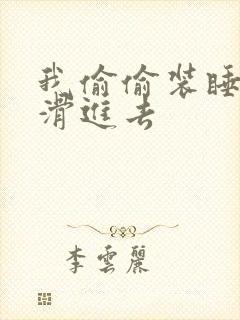 我偷偷装睡
滑進去
李雲麗